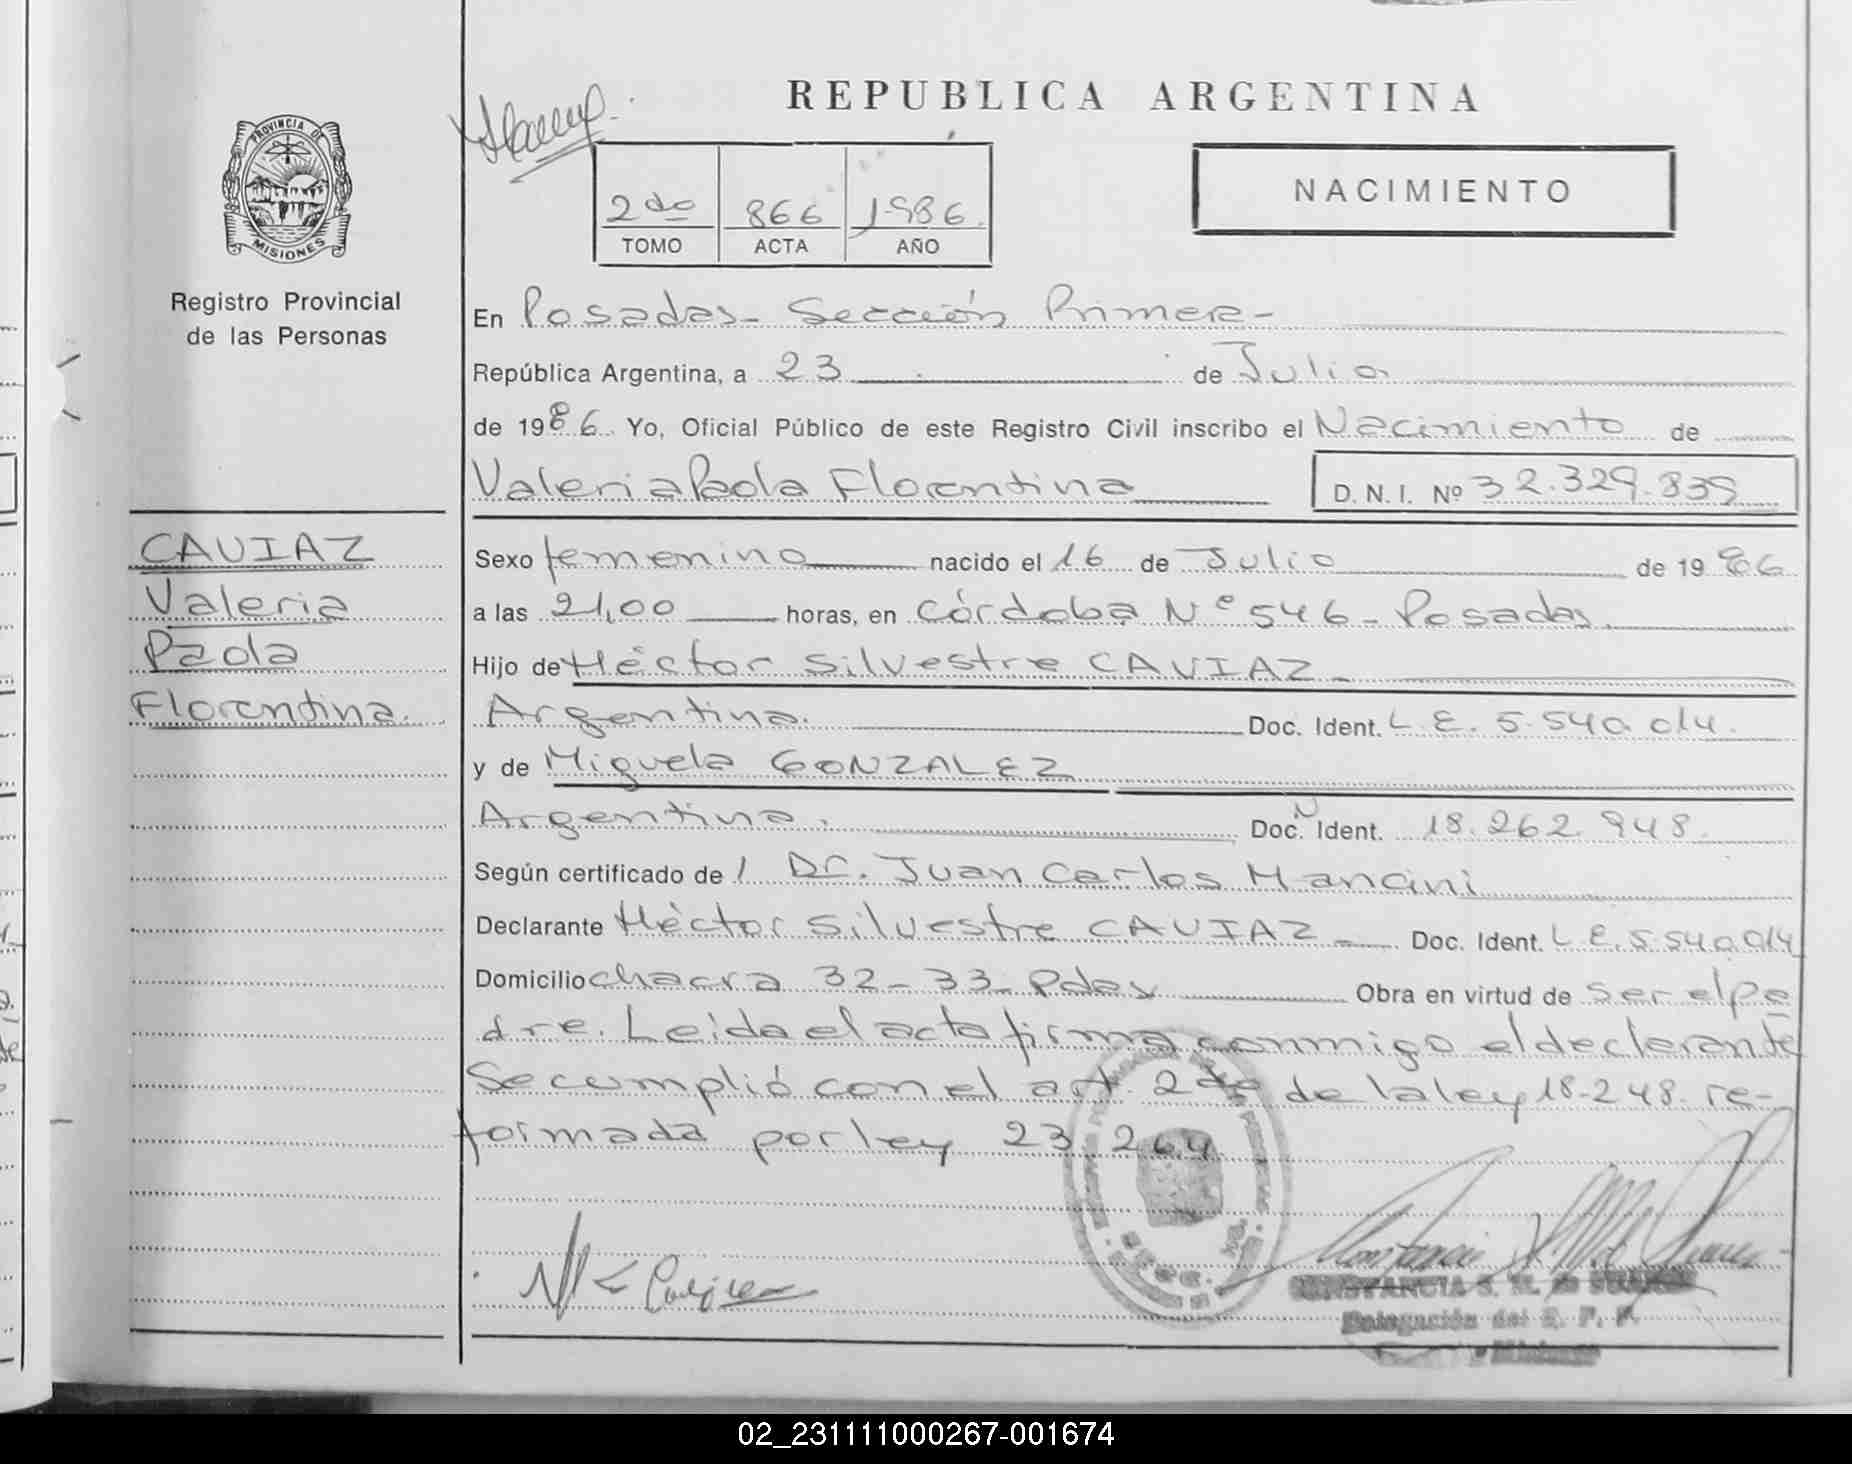 REPUBLICA ARGENTINA
PROVINCIA DE
MISIONES
2do 866 1986.
TOMO ACTA AÑO
NACIMIENTO
Registro Provincial
de las Personas
CAVIAZ
Valeria
Paola
Florentina.
En Posadas - Sección Primera -
República Argentina, a 23 de Julio
de 1986. Yo, Oficial Público de este Registro Civil inscribo el Nacimiento de
Valeria Paola Florentina D.N.I. Nº 32.329.839
Sexo femenino nacido el 16 de Julio de 1986
a las 21,00 horas, en Córdoba Nº 546 - Posadas.
Hijo de Héctor Silvestre CAVIAZ -
Argentina. Doc. Ident. L.E. 5.540.014.
y de Miguela GONZALEZ
Argentina. Doc. Ident. N 18.262.948.
Según certificado de / Dr. Juan Carlos Mancini
Declarante Héctor Silvestre CAVIAZ - Doc. Ident. L.E. 5.540.014
Domicilio chacra 32-33- Pdas Obra en virtud de ser el pa
dre. Leida el acta firma conmigo el declarante
Se cumplió con el art. 2do de la ley 18.248. re-
formada por ley 23.264
CONSTANCIA S. M. de
Delegación del R. P. P.
Misiones
02_231111000267-001674